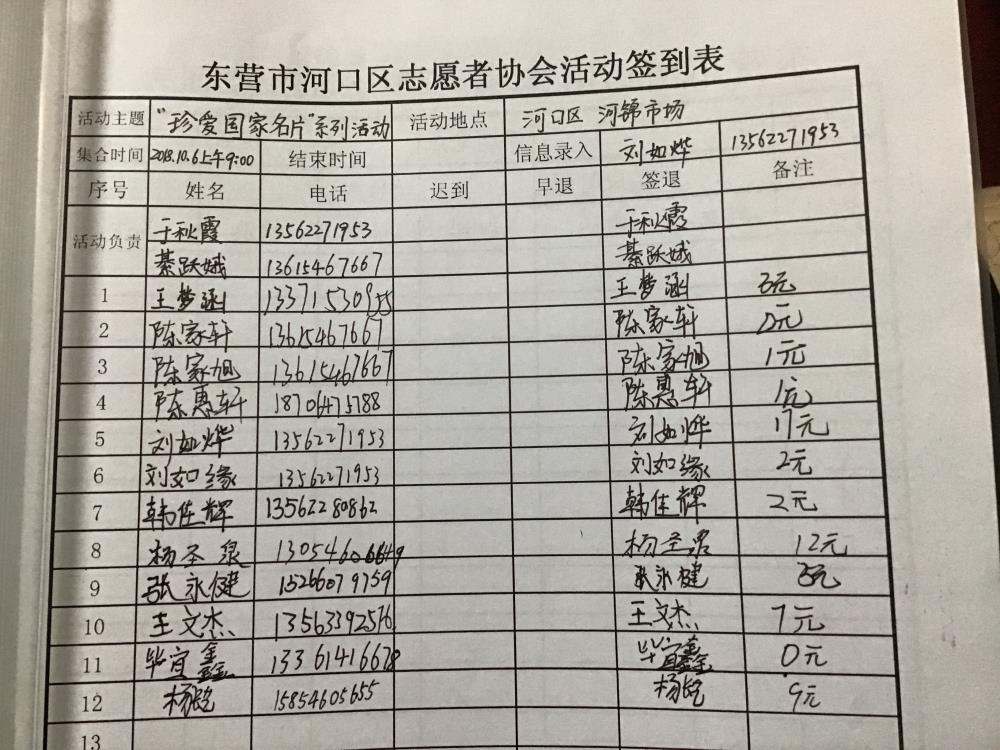 东营市河口区志愿者协会活动签到表
活动主题 “珍爱国家名片”系列活动 活动地点 河口区 河锦市场
集合时间 2018.10.6上午9:00 结束时间 信息录入 刘如烨 13562271953
序号 姓名 电话 迟到 早退 签退 备注
活动负责 于秋霞 13562271953 于秋霞
綦跃娥 13615467667 綦跃娥
1 王梦涵 13371530955 王梦涵 3元
2 陈家轩 13615467667 陈家轩 0元
3 陈家旭 13615467667 陈家旭 1元
4 陈惠轩 18706475788 陈惠轩 1元
5 刘如烨 13562271953 刘如烨 17元
6 刘如缘 13562271953 刘如缘 2元
7 韩佳辉 13562280862 韩佳辉 2元
8 杨圣泉 13054606649 杨圣泉 12元
9 张永健 15266079759 张永健 3元
10 王文杰 13563392576 王文杰 7元
11 毕宜鑫 13361416678 毕宜鑫 0元
12 15854605655 9元
13